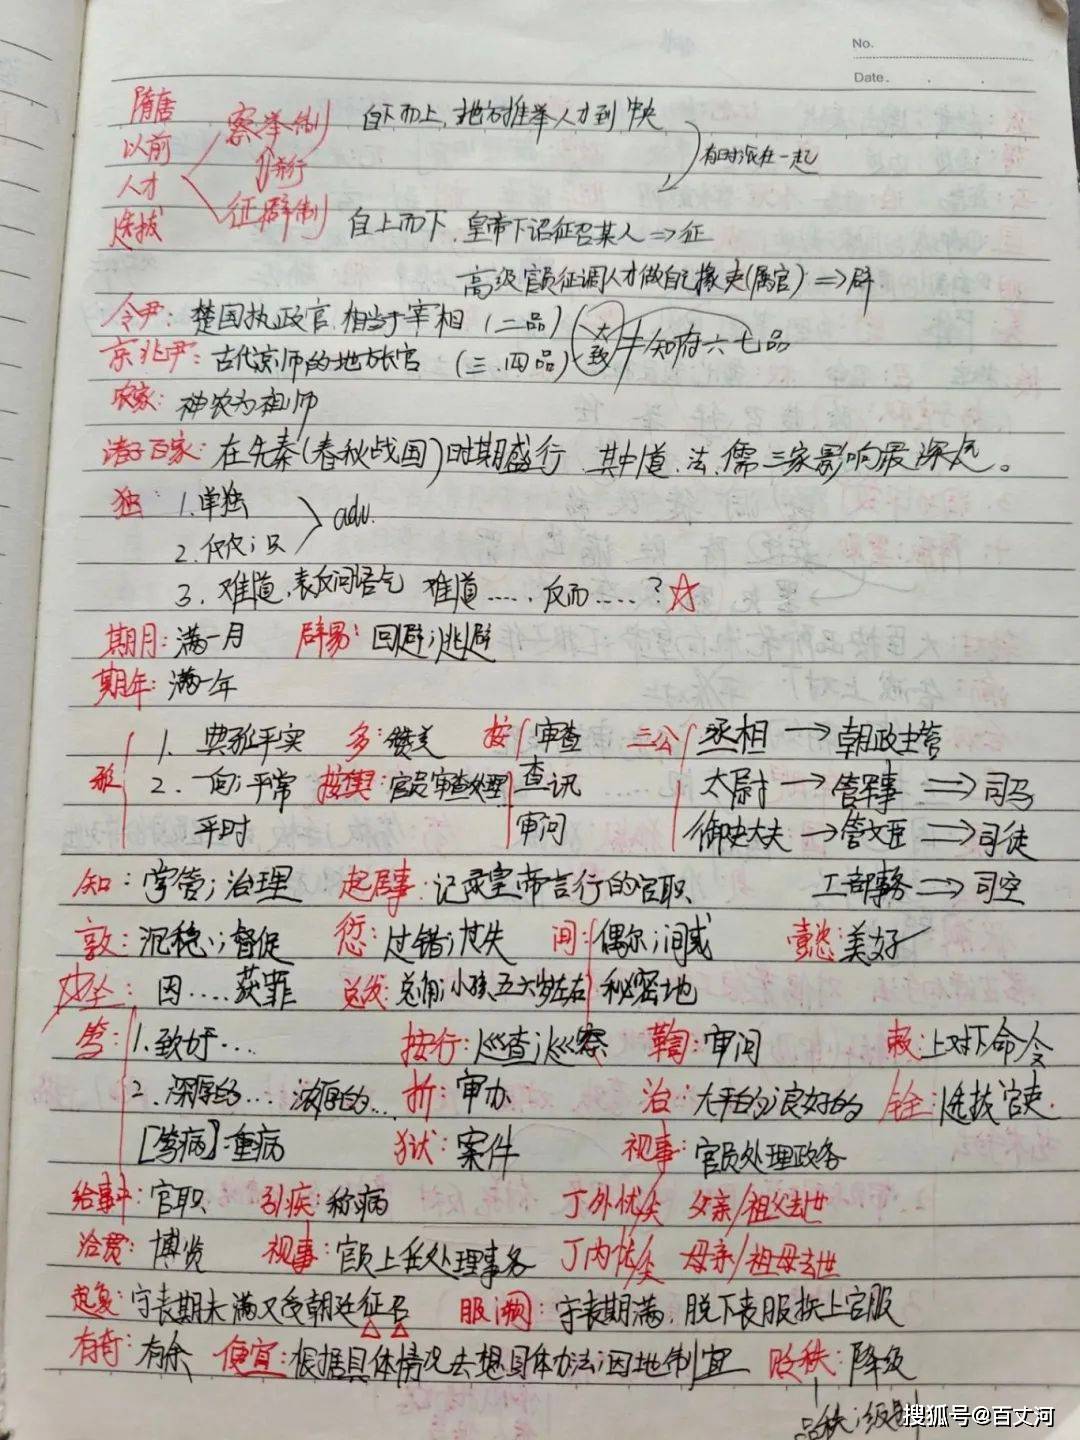 No.
Date.
隋唐以前人才选拔
察举制 自下而上，地方推举人才到中央
并行 有时混在一起
征辟制 自上而下，皇帝下诏征召某人⇒征
高级官员征调人才做自己掾吏(属官)⇒辟
令尹：楚国执政官，相当于宰相(二品)
京兆尹：古代京师的地方长官(三、四品) (大致) ≠知府六七品
农家：神农为祖师
诸子百家：在先秦(春秋战国)时期盛行，其中道、法、儒三家影响最深远。
独 1.单独
2.仅仅；只 adv.
3.难道，表反问语气 难道……反而……？☆
期月：满一月 辟易：回避；逃避
期年：满一年
雅 1. 典雅平实 多：赞美 按 审查 三公 丞相→朝政主管
2. 一向；平常 按舆：官员审查处理 查讯 太尉→管军事⇒司马
平时 审问 御史大夫→管文臣⇒司徒
知：掌管；治理 起居事：记录皇帝言行的官职 工部事务⇒司空
敦：沉稳；督促 愆：过错；过失 间：偶尔；间或 懿：美好
坐：因……获罪 总发：总角；小孩五六岁左右 秘密地
笃：1.致好… 按行：巡查；巡察 鞫：审问 敕：上对下命令
2.深厚的…浓厚的… 折：审办 治：太平的；良好的 铨：选拔官吏
[笃病]：重病 狱：案件 视事：官员处理政务
给事中：官职 引疾：称病 丁外忧/艰 父亲/祖父去世
洽贯：博览 视事：官员上任处理事务 丁内忧/艰 母亲/祖母去世
起复：守丧期未满又受朝廷征召 服阕：守丧期满，脱下丧服换上官服
有奇：有余 便宜：根据具体情况去想具体办法；因地制宜 贬秩：降级
品秩；级别
搜狐号@百丈河